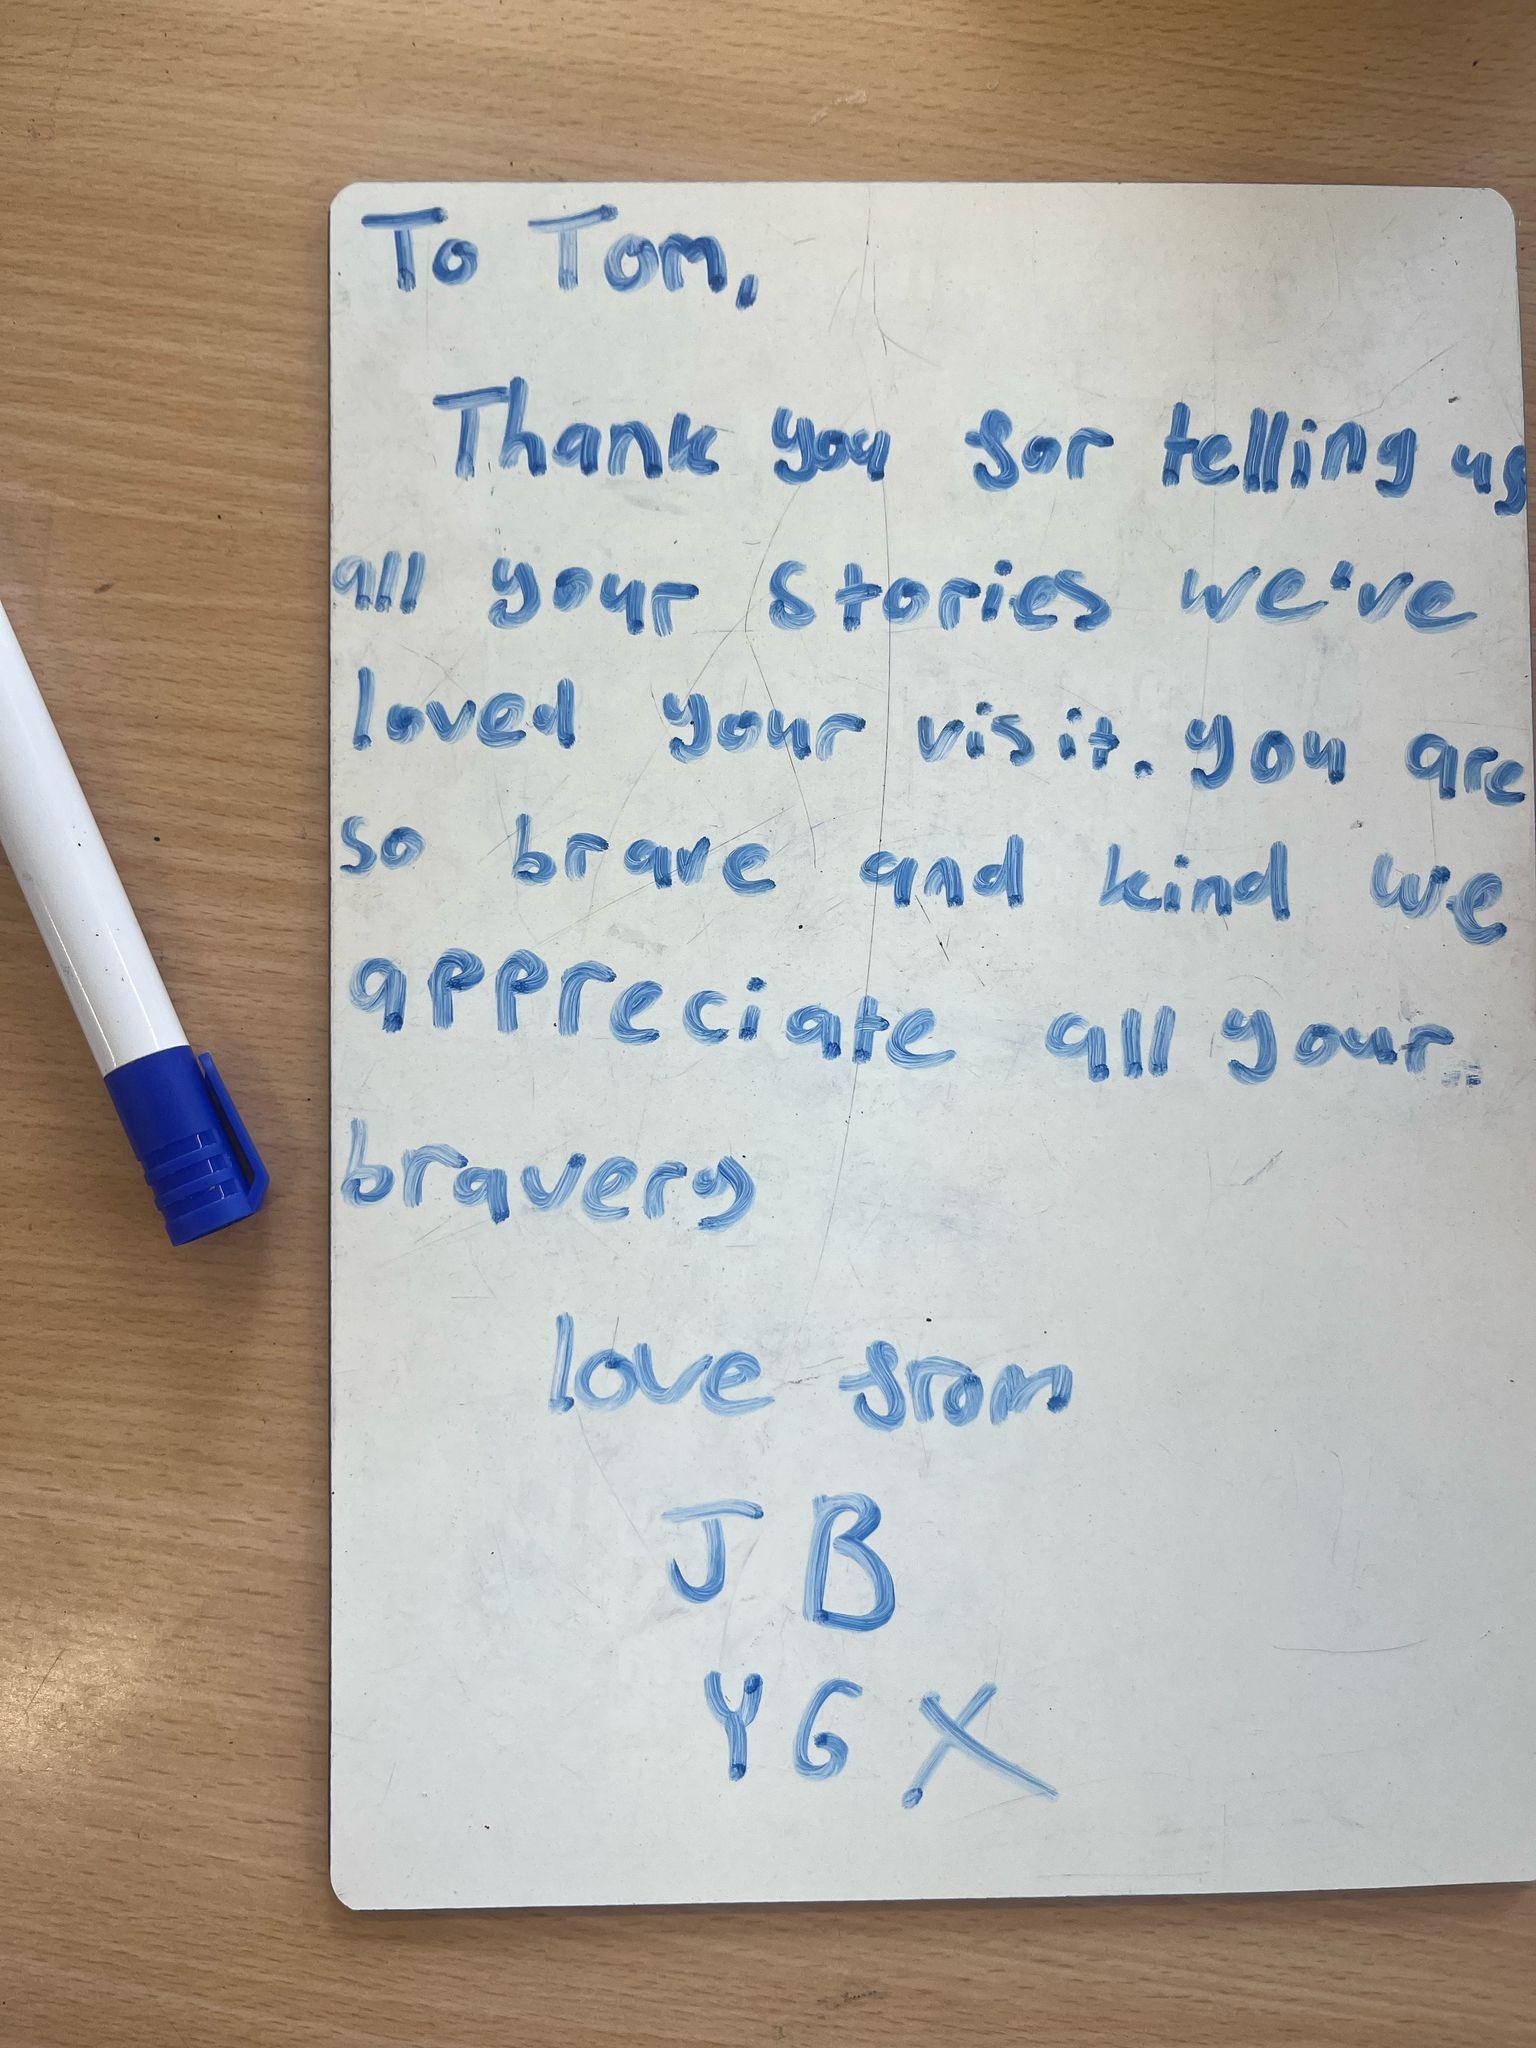 To Tom,
Thank you for telling us
all your stories we've
loved your visit. you are
so brave and kind we
appreciate all your
bravery
love from
J B
Y6 X